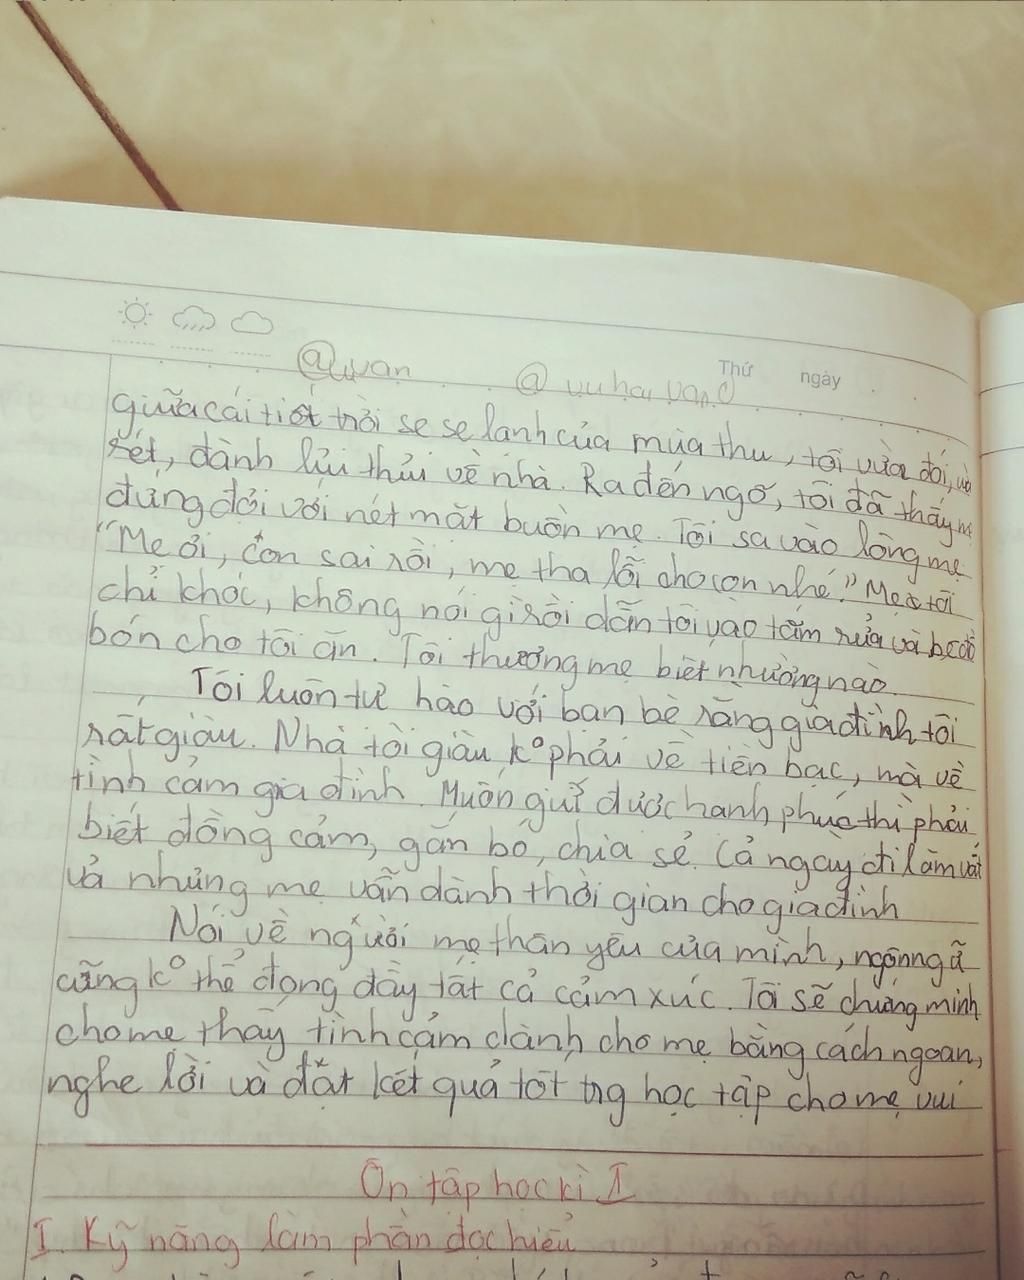 Thứ ngày
giữa cái tiết trời se se lạnh của mùa thu, tôi vừa đói, và
rét, đành lủi thủi về nhà. Ra đến ngõ, tôi đã thấy mẹ
đứng đợi với nét mặt buồn mẹ. Tôi sa vào lòng mẹ
"Mẹ ơi, con sai rồi, mẹ tha lỗi cho con nhé." Mẹ tôi
chỉ khóc, không nói gì rồi dẫn tôi vào tắm rửa và
bón cho tôi ăn. Tôi thương mẹ biết nhường nào.
Tôi luôn tự hào với bạn bè rằng gia đình tôi
rất giàu. Nhà tôi giàu k° phải về tiền bạc, mà về
tình cảm gia đình. Muốn giữ được hạnh phúc thì phải
biết đồng cảm, gắn bó, chia sẻ. Cả ngày đi làm vất
vả nhưng mẹ vẫn dành thời gian cho gia đình
Nói về người mẹ thân yêu của mình, ngôn ngữ
cũng k° thể đong đầy tất cả cảm xúc. Tôi sẽ chứng minh
cho mẹ thấy tình cảm dành cho mẹ bằng cách ngoan,
nghe lời và đặt kết quả tốt trg học tập cho mẹ vui
Ôn tập học kì I
I. Kỹ năng làm phần đọc hiểu